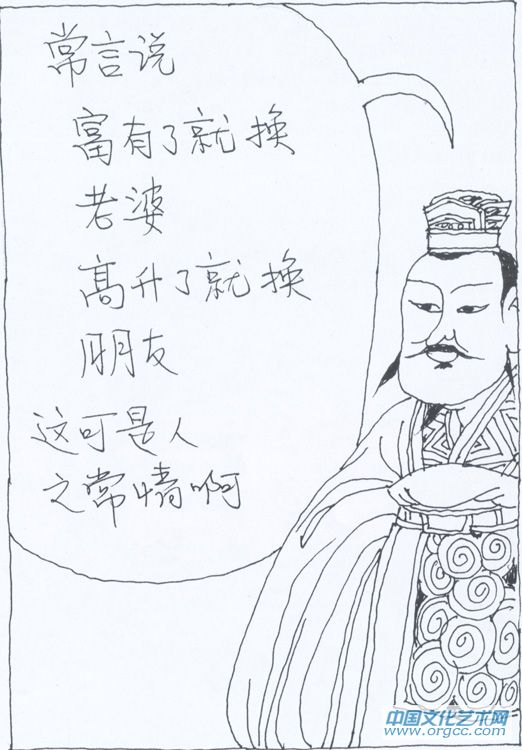 常言说
富有了就换
老婆
高升了就换
朋友
这可是人
之常情啊
中国文化艺术网
www.orgcc.com